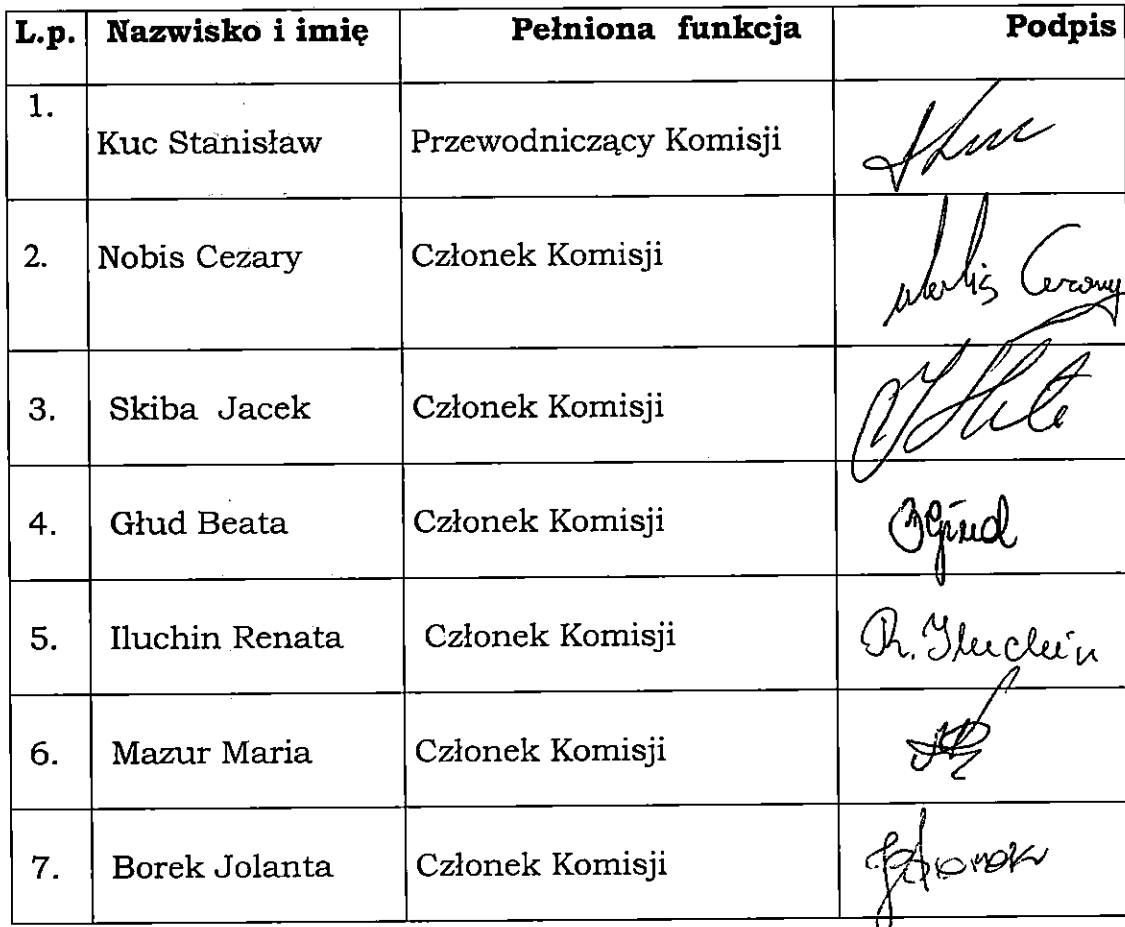 L.p. Nazwisko i imię Pełniona funkcja Podpis
1. Kuc Stanisław Przewodniczący Komisji
2. Nobis Cezary Członek Komisji Nobis Cezary
3. Skiba Jacek Członek Komisji
4. Głud Beata Członek Komisji BGłud
5. Iluchin Renata Członek Komisji R. Iluchin
6. Mazur Maria Członek Komisji
7. Borek Jolanta Członek Komisji